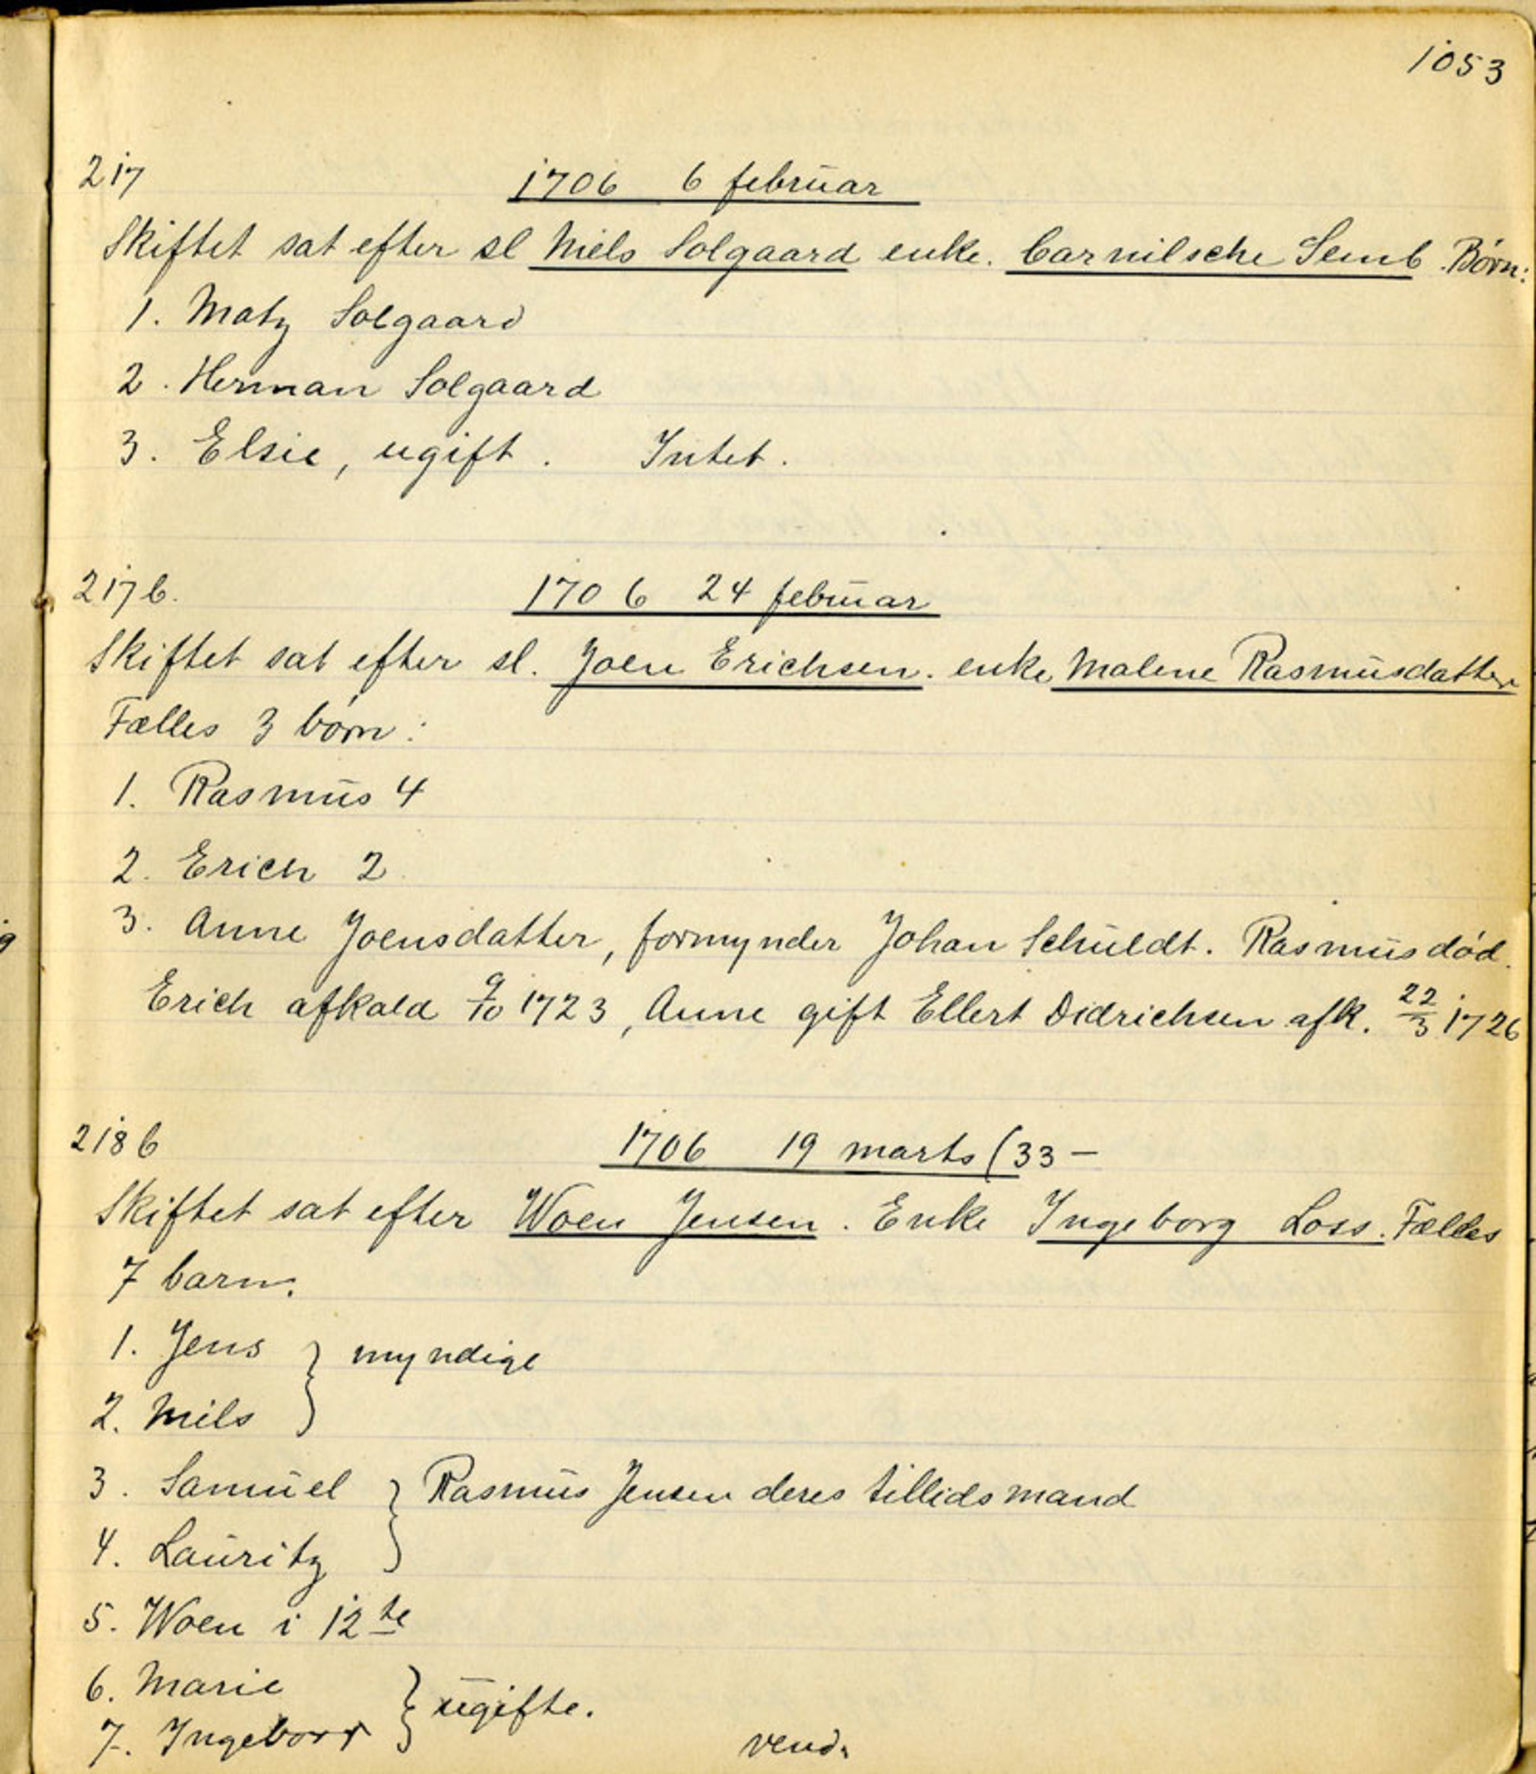 1053
217
1706 6 februar
Skiftet sat efter sl Niels Solgaard enke. Carnilsche Semb. Børn:
1. Matz Solgaard
2. Herman Solgaard
3. Elsie, ugift. Intet.
217b.
1706 24 februar
Skiftet sat efter sl. Joen Erichsen. enke Malene Rasmusdatter
Fælles 3 børn:
1. Rasmus 4
2. Erich 2
3. Anne Joensdatter, formynder Johan Schuldt. Rasmus død.
Erich afkald 9/10 1723, Anne gift Ellert Didrichsen afk. 22/3 1726
218b
1706 19 marts (33 –
Skiftet sat efter Woen Jensen. Enke Ingeborg Loss. Fælles
7 barn.
1. Jens } myndige
2. Niels
3. Samuel } Rasmus Jensen deres tillidsmand
4. Lauritz
5. Woen i 12te
6. Marie } ugifte.
7. Ingeborg
vend.